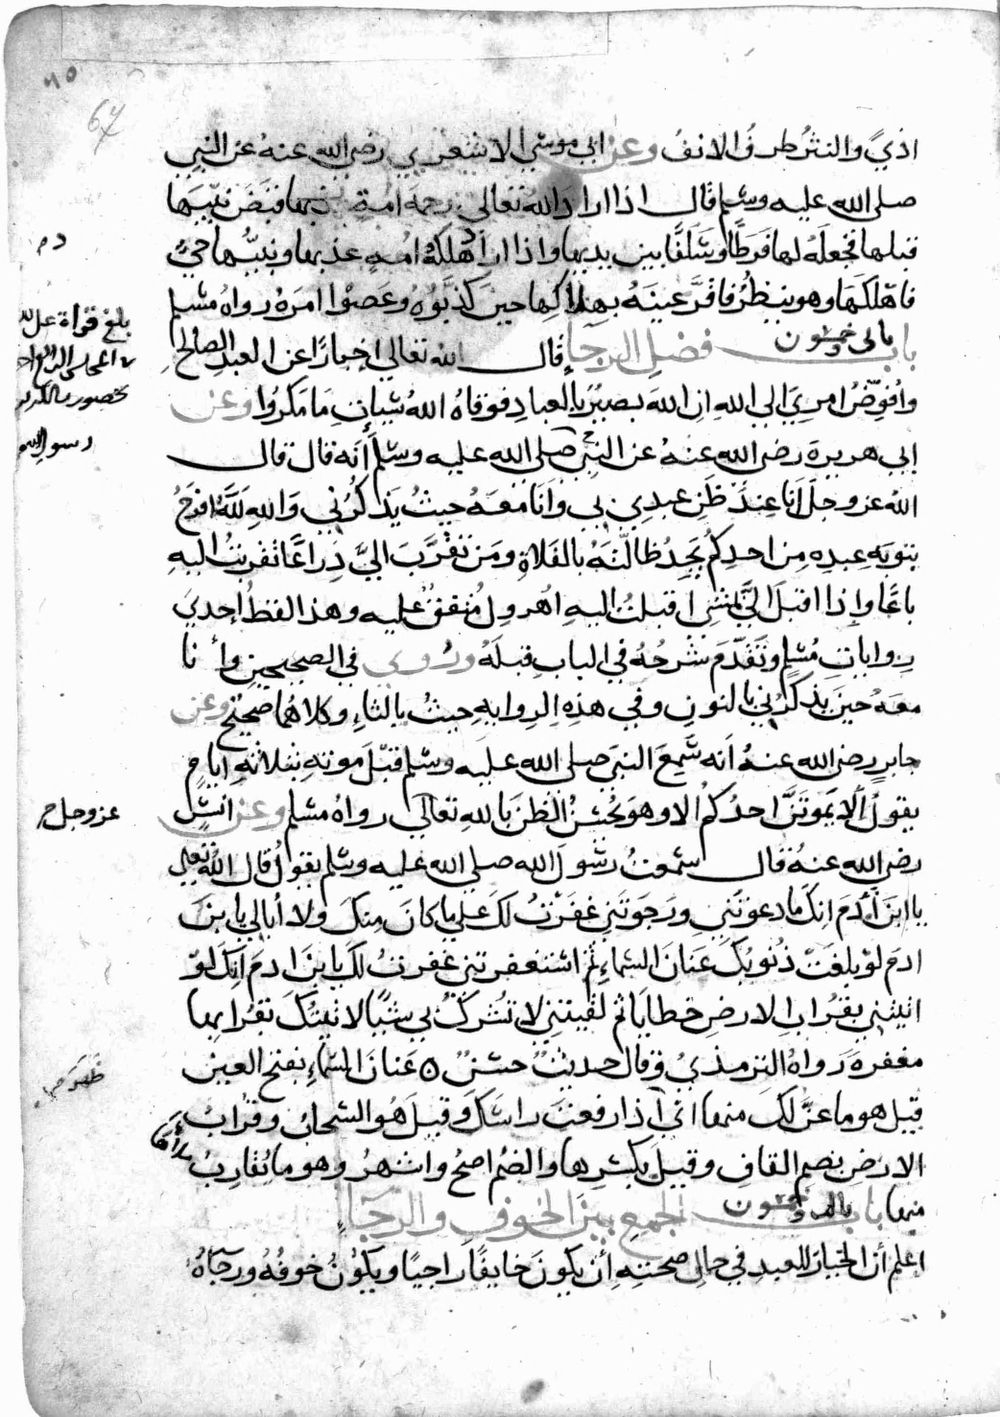 اذيً والنثرُ طرفُ الانف وعن ابي موسي الاشعري رضي الله عنهُ عن النبي
صلي الله عليه وسلم قال اذا اراد الله تعالي رحمة امةٍ قبض نبيّها
قبلها فجعلهُ لها فرطًا وسلفًا بين يديها واذا اراد هلكةُ امةٍ عذبها ونبيُّها حيٌّ
فاهلكها وهو ينظرُ فاقرَّ عينهُ بهلاكها حين كذّبوُهُ وعصوْا امرهُ رواهُ مسلم
باب فضل الرجآءِ قال الله تعالي إخبارًا عن العبدِ الصالح
وافوّضُ امري الي الله ان الله بصيرٌ بالعباد فوقاهُ اللهُ سيّات ما مكرُوا وعن
ابي هريرة رضي الله عنهُ عن النبي صلي الله عليه وسلم أنه قال قال
اللهُ عز وجل انا عند ظن عبدي بي وانا معهُ حيثُ يذكرُني والله للّهُ افرحُ
بتوبه عبده من احدكم يجدُ ضالّتهُ بالفلاةِ ومن تقرّب اليّ ذراعًا تقربتُ اليه
باعًا واذا اقبل اليّ يمشي اقبلتُ اليه اهرولُ متفقٌ عليه وهذا لفظُ إحدي
روايات مُسلم وتقدّم شرحُهُ في الباب قبلهُ ورُوي في الصحيحين وأنا
معهُ حين يذكرُني بالنون وفي هذه الروايه حيثُ بالثاءِ وكلاهُما صحيحٌ وعن
جابرٍ رضي الله عنهُ أنه سمع النبي صلي الله عليه وسلم قبل موته بثلاثه ايامٍ
يقولُ لا يموتنّ احدُكم الا وهو يُحسنُ الظن بالله تعالي رواهُ مسلم وعن انسٍ
رضي الله عنهُ قال سمعتُ رسول الله صلي الله عليه وسلم يقولُ قال اللهُ تعالي
يا ابن آدم انك ما دعوتني ورجوتني غفرتُ لك علي ما كان منك ولا أبالي يابن
ادم لوْ بلغتْ ذُنوبُك عنان السماءِ ثم استغفرتني غفرتُ لك يابن ادم انك لوْ
اتيتني بقُراب الارضِ خطايا ثم لقيتني لا تُشركُ بي شيئًا لاتيتُك بقُرابها
مغفره رواهُ الترمذيُ وقال حديثٌ حسنٌ ٥ عنان السماءِ بفتح العين
قيل هو ما عنّ لك منها اي اذا رفعت راسك وقيل هُو السحابُ وقُرابُ
الارض بضم القاف وقيل بكسرها والضمُ اصحُ واشهرُ وهو ما يُقاربُ
منها باب الجمع بين الخوف والرجآءِ
اعلم أن المختار للعبد في حال صحته أن يكون خايفًا راجيًا ويكوُنُ خوفُهُ ورجآهُ
67
عز وجل